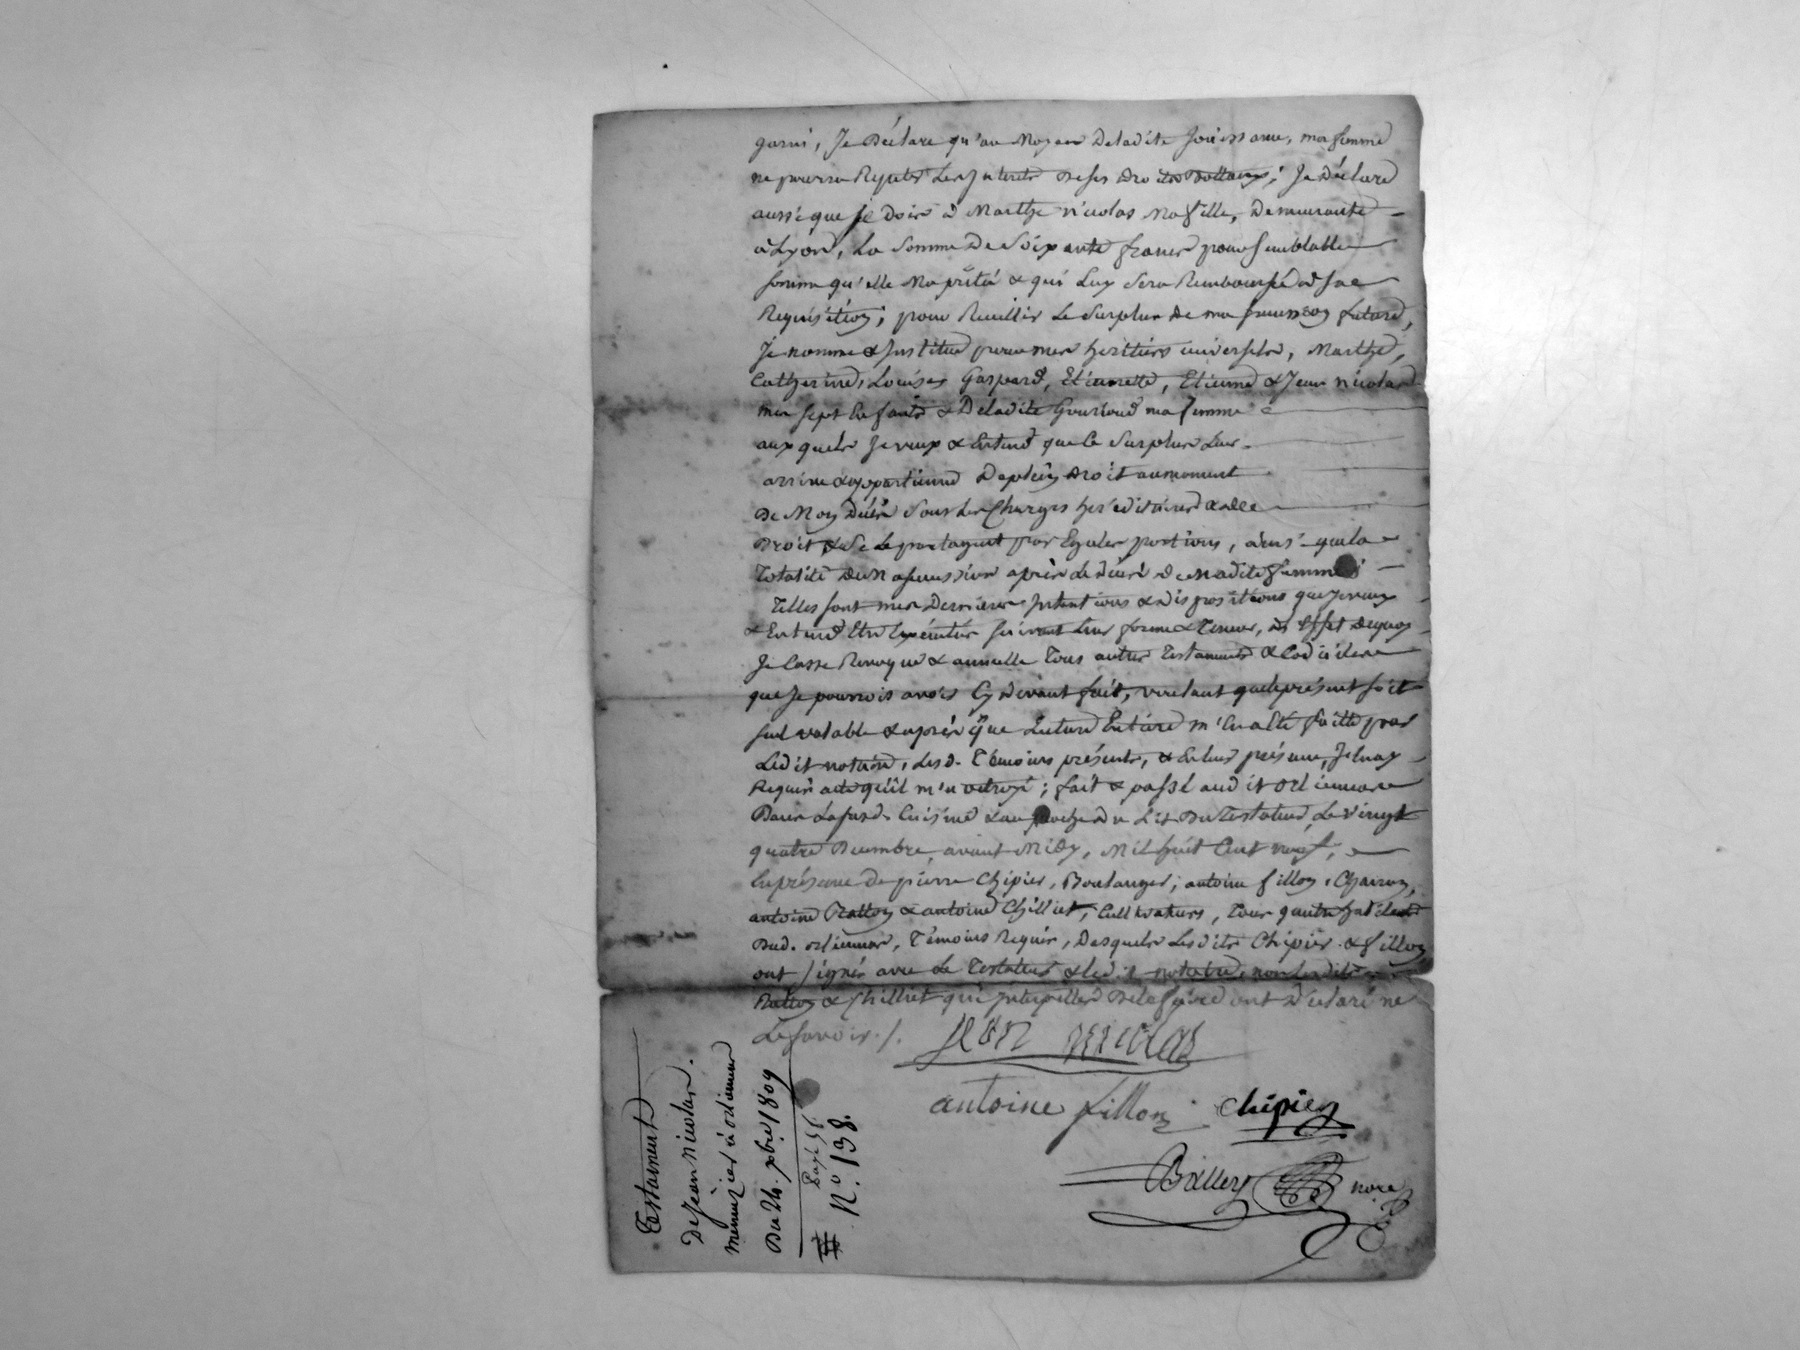 garni, Je Déclare qu'au Moyen deladite Jouissance, ma femme
ne pourra Repeter Les Interets de ses droits Dottaux; Je Déclare
aussi que je dois à Marthe nicolas Ma fille, demeurante
à Lyon, La Somme De Soixante francs pour semblable
somme qu'elle Ma prêtée & qui Luy Sera Remboursée à sa
Requisition; pour Recuillir Le Surplus de ma succession future,
Je nomme & Institue pour mes heritiers universels, Marthe,
Catherine, Louise, Gaspard, Etiennette, Etienne & Jean nicolas
mes sept Enfants & Deladite Gourioud ma femme
aux quels Je veux & Entend que le Surplus Leur
arrive & appartienne De plein droit au moment
De Mon Décès Sous Les Charges héréditaires & de
Droit & se Le partagent par Egales portions, ainsi que la
Totalité de ma succession après le décès de madite femme;
Telles sont mes Dernieres Intentions & dispositions que je veux
& Entend Etre Exécutées suivant leur forme & Teneur, à l'Effet de quoy
Je Casse Revoque & annulle Tous autres Testaments & Codiciles
que Je pourrois avoir Cy devant fait, voulant que le présent soit
seul valable & après que Lecture Entiere m'En a Eté faitte par
Ledit notaire, Lesd. Témoins présents, & En leur présence, Je l'nay
Requis acte qu'il m'a octroyé; fait & passé audit orliennas
Dans La susd. Cuisine & au proche du Lit Du Testateur, Le Vingt
quatre Decembre, avant Midy, Mil huit Cent neuf,
En présence de pierre Chipier, Boulanger; antoine fillon, Charron,
antoine Ratton & antoine Chilliet, Cultivateurs, Tous quatre habitants
Dud. orliennas, Témoins Requis, Desquels Lesdits Chipier & fillon
ont signés avec Le Testateur & ledit notaire, non Lesdits
Ratton & Chilliet qui Interpellés De le faire ont Déclaré ne
Le savoir./.
jean nicolas
antoine fillon chipier
Balley nore
Testament
De Jean nicolas.
menuizier à orliennas
Du 24. xbre 1809
N.º 138.